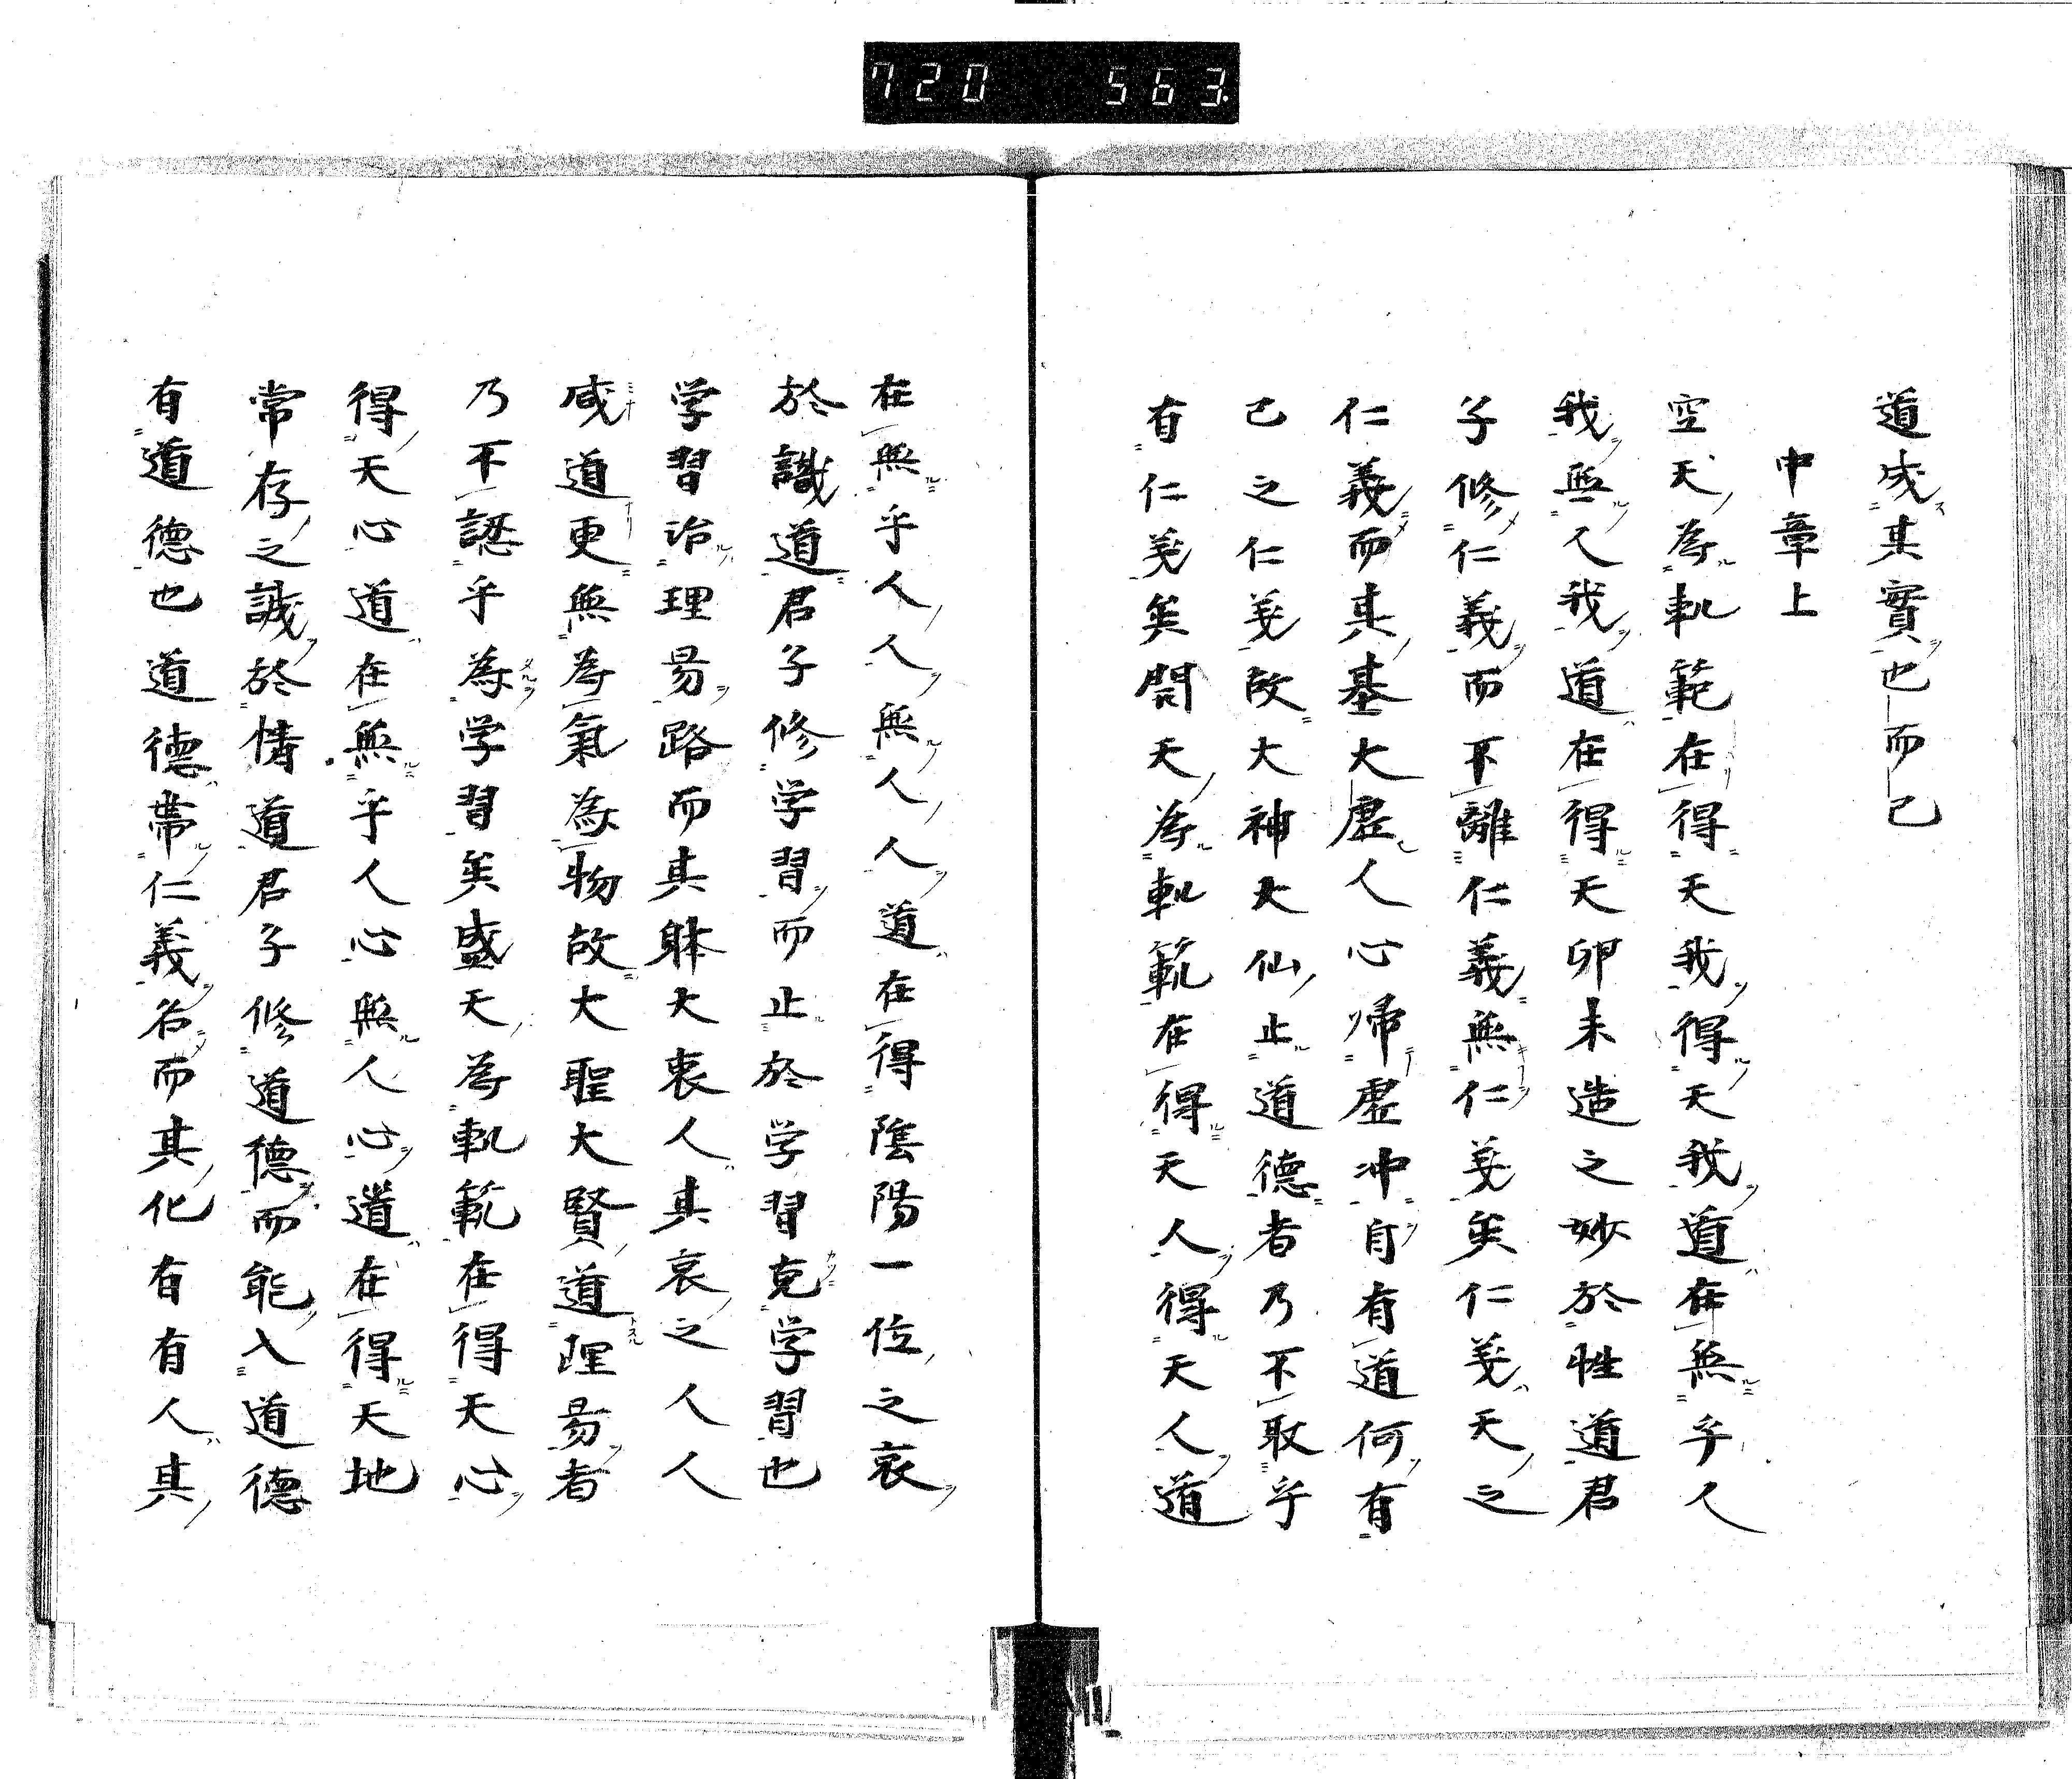 720 563
道成其實也而已
中章上
空天為軌範在得天我得天我道在無乎人
我無人我道在得天卯未造之妙於性道君
子修仁義而不離仁義無仁義矣仁義天之
仁義而其基大虛人心帰虛冲自有道何有
己之仁義故大神大仙止道德者乃不取乎
有仁義矣開天為軌範在得天人得天人道
在無乎人人無人人道在得陰陽一位之哀
於識道君子修学習而止於学習克学習也
学習治理易路而其躰大衷人其哀之人人
咸道更無為氣為物故大聖大賢道理易者
乃不認乎為学習矣盛天為軌範在得天心
得天心道在無乎人心無人心道在得天地
常存之誠於情道君子修道德而能入道德
有道德也道德帯仁義名而其化有有人其